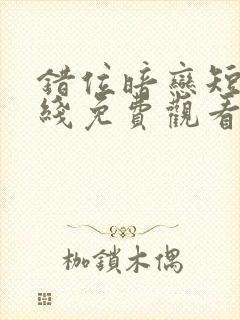 錯位暗戀短
綫免費觀看
枷鎖木偶